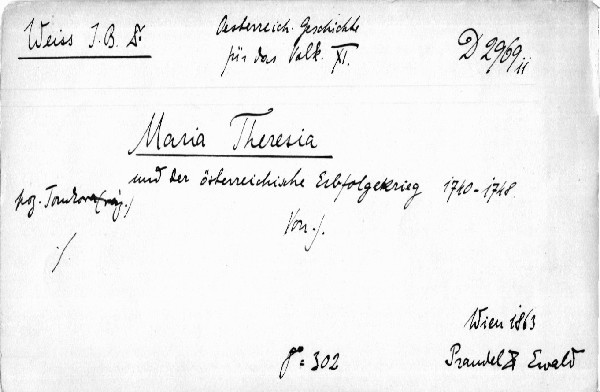 Weiss J. B. Dr.
Oesterreich. Geschichte
für das Volk. XI.
D 2969 II
Maria Theresia
und der österreichische Erbfolgekrieg 1740-1748.
Von ./.
./.
Wien 1863
Prandel & Ewald
8° 302